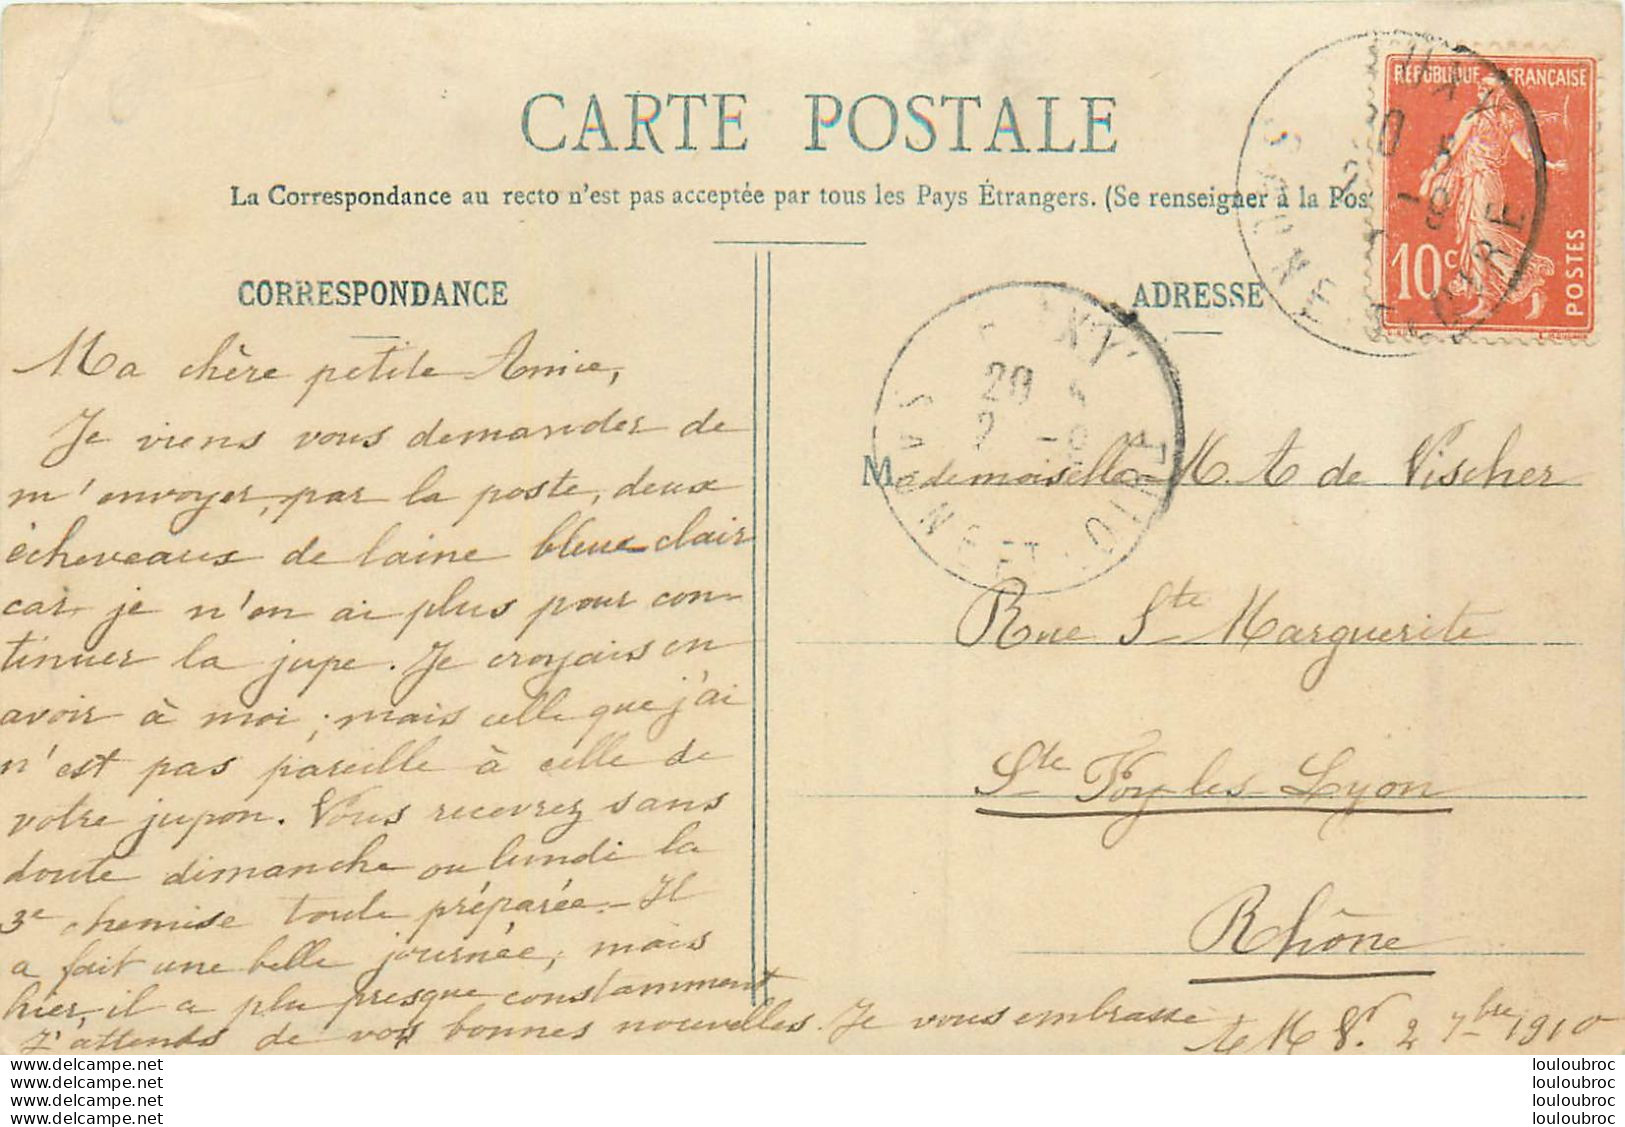 CARTE POSTALE
La Correspondance au recto n'est pas acceptée par tous les Pays Étrangers. (Se renseigner à la Pos
RÉPUBLIQUE FRANÇAISE
10c
POSTES
CORRESPONDANCE
ADRESSE
Ma chère petite Amie,
Je viens vous demander de
m'envoyer, par la poste, deux
écheveaux de laine bleue clair
car je n'en ai plus pour con-
tinuer la jupe. Je croyais en
avoir à moi ; mais celle que j'ai
n'est pas pareille à celle de
votre jupon. Vous recevrez sans
doute dimanche ou lundi la
3e chemise toute préparée. - Il
a fait une belle journée, mais
hier, il a plu presque constamment
J'attends de vos bonnes nouvelles. Je vous embrasse
2 7bre 1910
Mademoiselle M. A de Vischer
Rue Ste Marguerite
Ste Foy les Lyon
Rhône
SAONE ET LOIRE
20
SAONE ET LOIRE
www.delcampe.net
www.delcampe.net
www.delcampe.net
www.delcampe.net
louloubroc
louloubroc
louloubroc
louloubroc